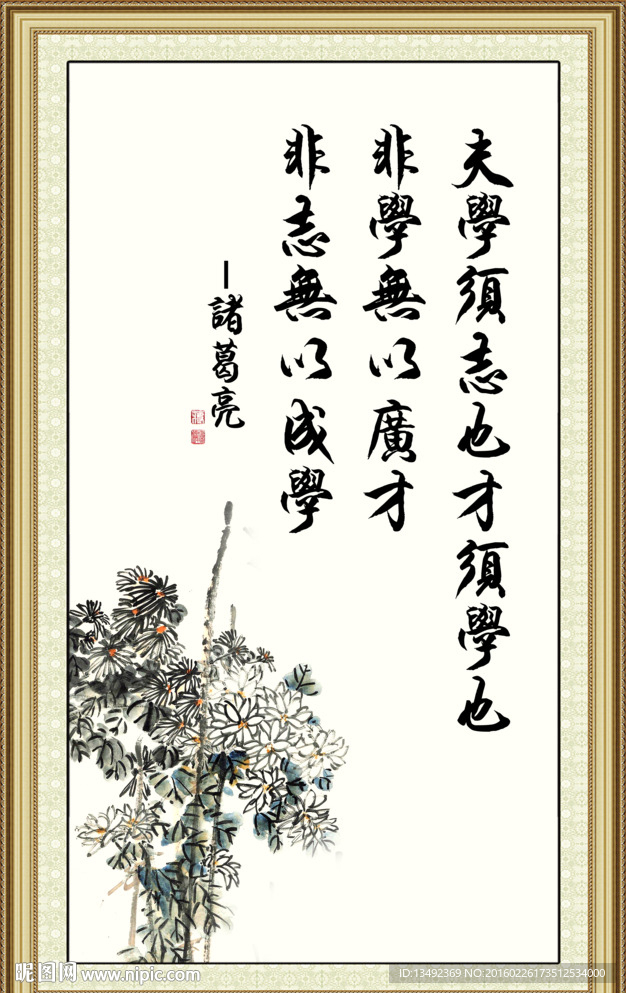 夫學須志也才須學也
非學無以廣才
非志無以成學
－諸葛亮
昵图网 www.nipic.com
ID:13492369 NO:20160226173512534000